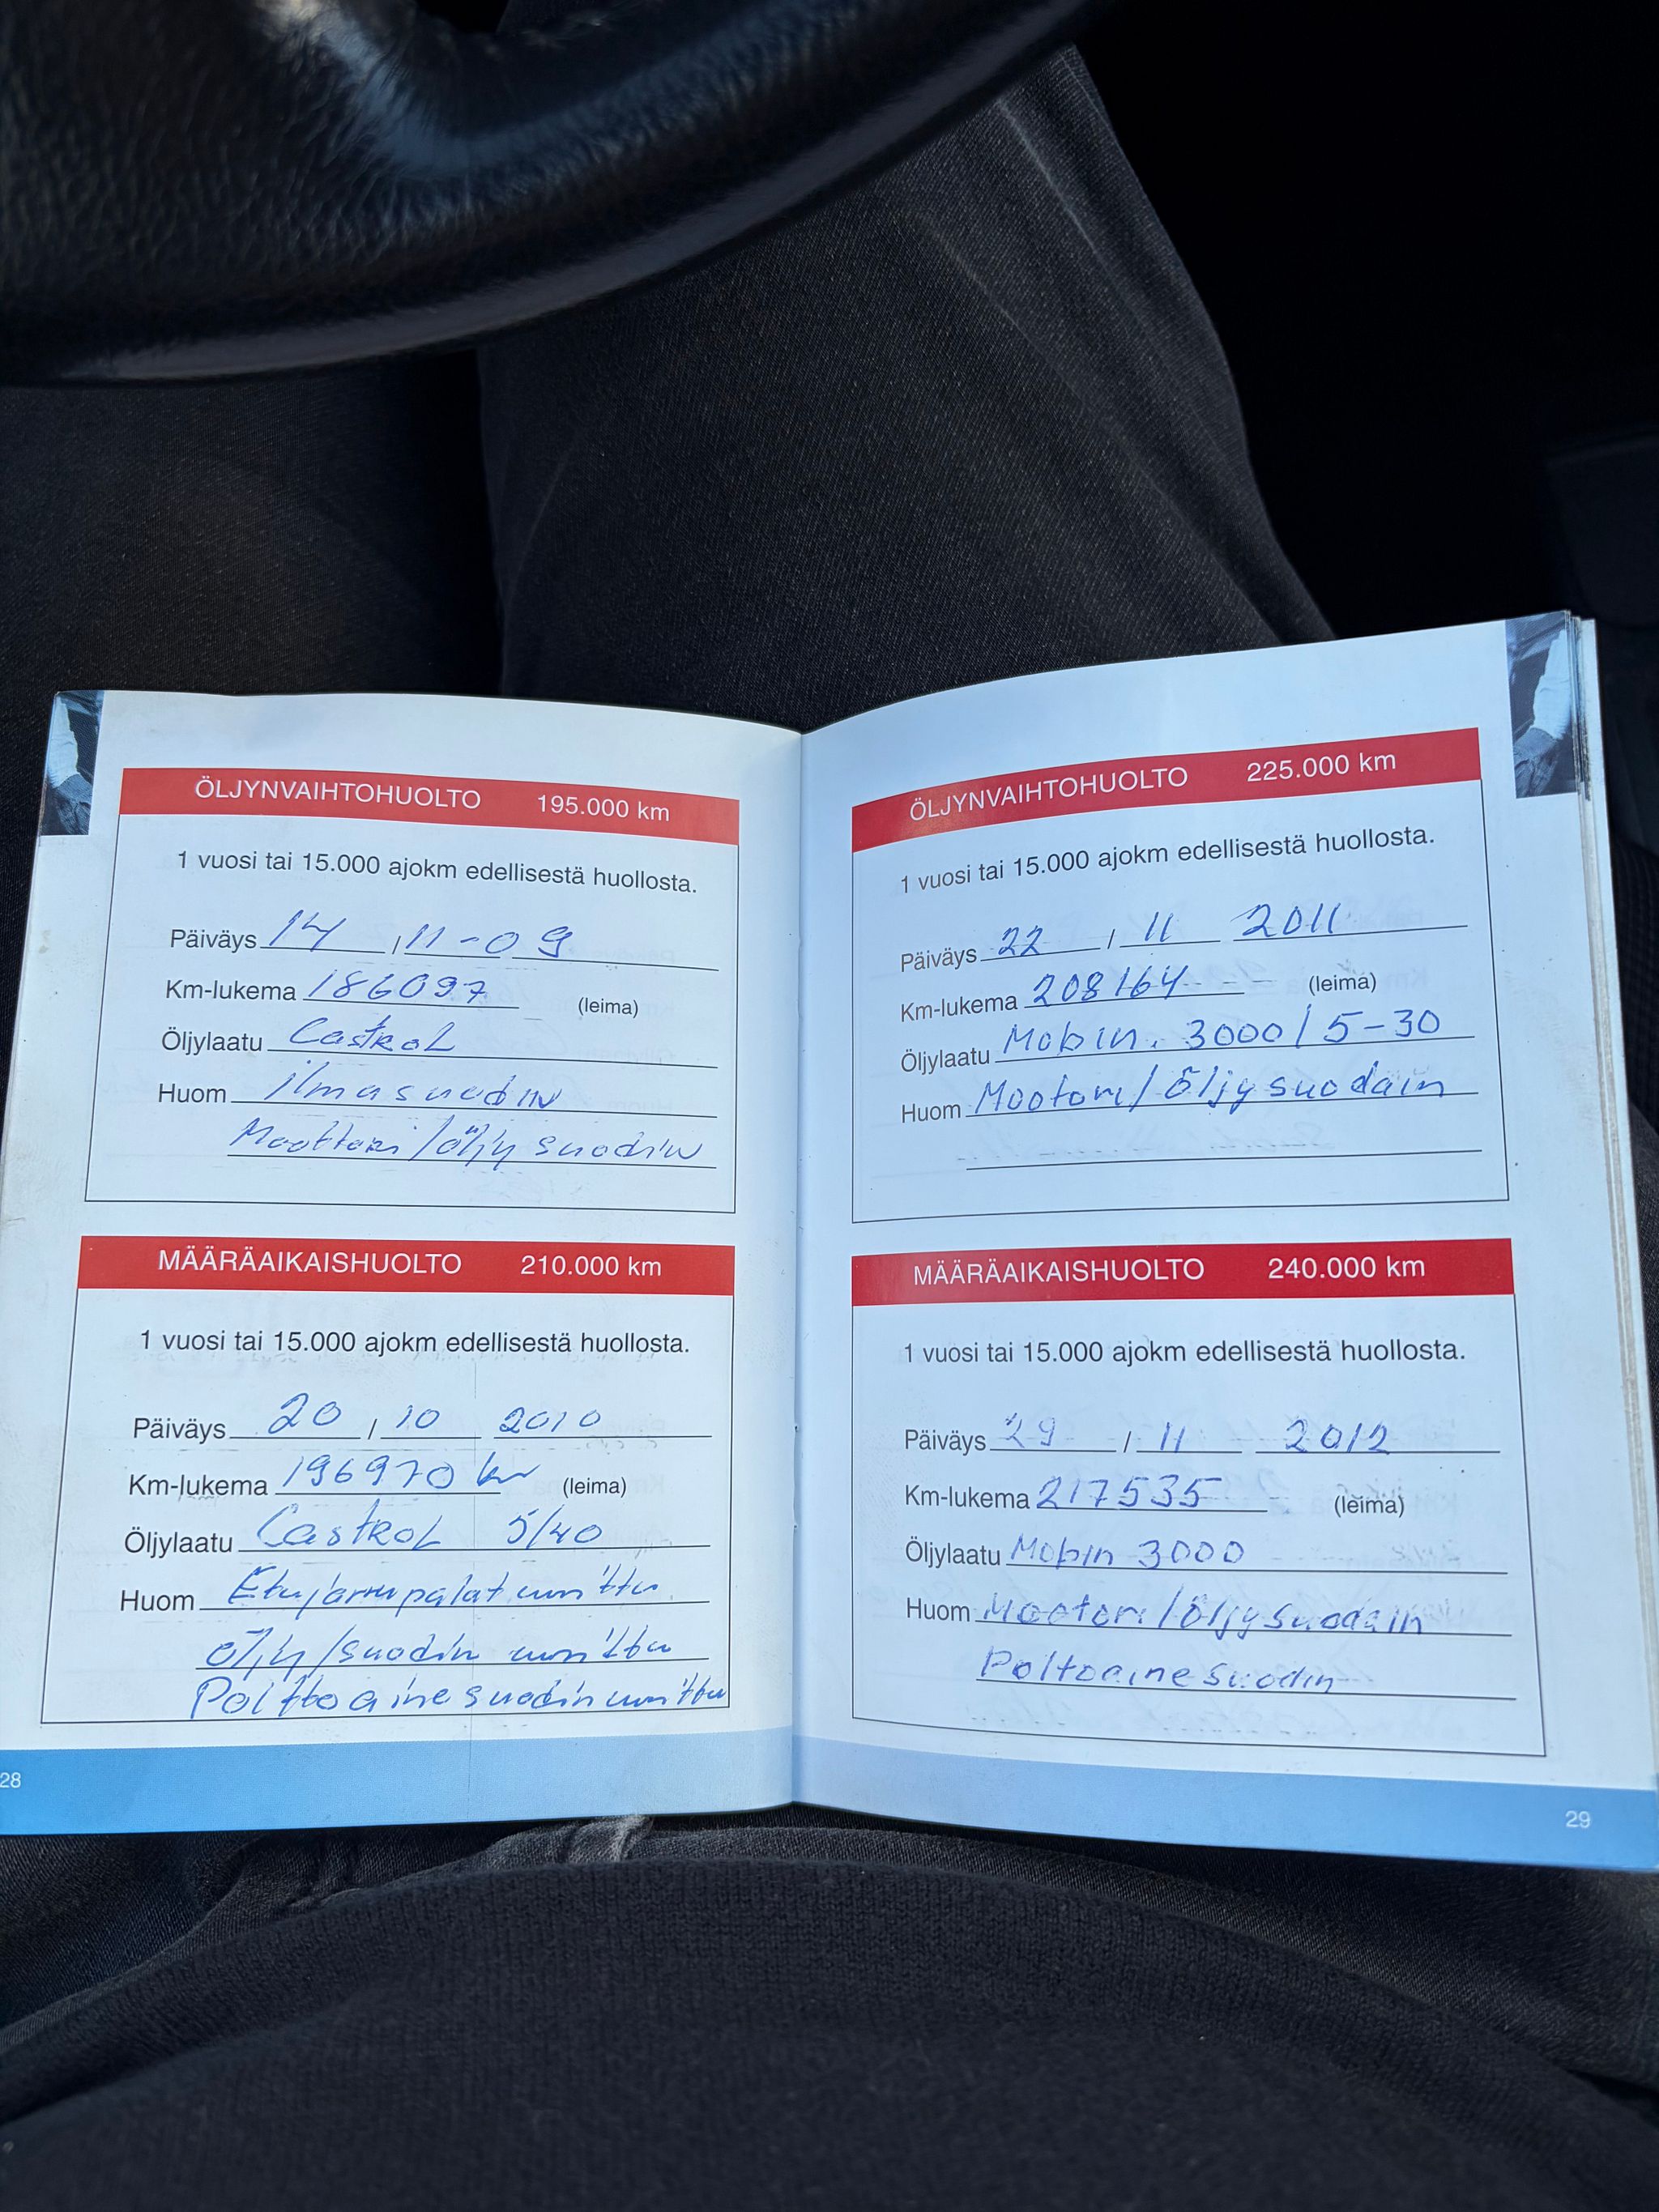 ÖLJYNVAIHTOHUOLTO 195.000 km
1 vuosi tai 15.000 ajokm edellisestä huollosta.
Päiväys 14 / 11-09
Km-lukema 186097 (leima)
Öljylaatu Castrol
Huom ilmasuodin
Moottori/öljy suodin
MÄÄRÄAIKAISHUOLTO 210.000 km
1 vuosi tai 15.000 ajokm edellisestä huollosta.
Päiväys 20 / 10 2010
Km-lukema 196970 km (leima)
Öljylaatu Castrol 5/40
Huom Etujarrupalat
öljy/suodin
Polttoaine suodin
28
ÖLJYNVAIHTOHUOLTO 225.000 km
1 vuosi tai 15.000 ajokm edellisestä huollosta.
Päiväys 22 / 11 2011
Km-lukema 208164 (leima)
Öljylaatu Mobin. 3000/5-30
Huom Mootori/öljysuodain
MÄÄRÄAIKAISHUOLTO 240.000 km
1 vuosi tai 15.000 ajokm edellisestä huollosta.
Päiväys 29 / 11 2012
Km-lukema 217535 (leima)
Öljylaatu Mobin 3000
Huom Mootori/öljysuodain
Poltoaine suodin
29